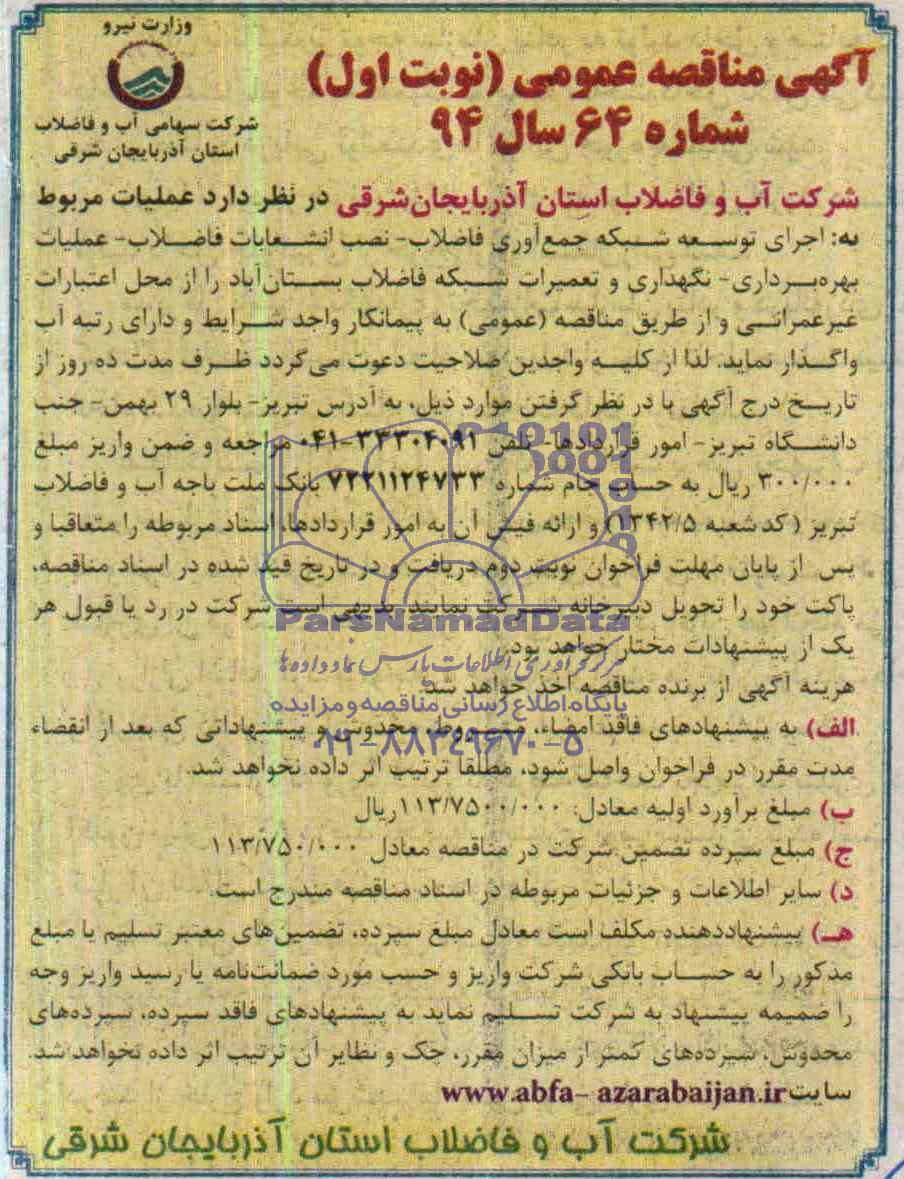 وزارت نیرو
شرکت سهامی آب و فاضلاب
استان آذربایجان شرقی
آگهی مناقصه عمومی (نوبت اول)
شماره ۶۴ سال ۹۴
شرکت آب و فاضلاب استان آذربایجان‌شرقی در نظر دارد عملیات مربوط
به: اجرای توسعه شبکه جمع‌آوری فاضلاب- نصب انشعابات فاضلاب- عملیات
بهره‌برداری- نگهداری و تعمیرات شبکه فاضلاب بستان‌آباد را از محل اعتبارات
غیرعمرانی و از طریق مناقصه (عمومی) به پیمانکار واجد شرایط و دارای رتبه آب
واگذار نماید. لذا از کلیه واجدین صلاحیت دعوت می‌گردد ظرف مدت ده روز از
تاریخ درج آگهی با در نظر گرفتن موارد ذیل، به آدرس تبریز- بلوار ۲۹ بهمن- جنب
دانشگاه تبریز- امور قراردادها- تلفن ۳۳۳۰۴۰۹۱-۰۴۱ مراجعه و ضمن واریز مبلغ
۳۰۰/۰۰۰ ریال به حساب جام شماره ۷۲۲۱۱۲۴۷۳۳ بانک ملت باجه آب و فاضلاب
تبریز (کد شعبه ۱۳۴۲/۵) و ارائه فیش آن به امور قراردادها، اسناد مربوطه را متعاقبا و
پس از پایان مهلت فراخوان نوبت دوم دریافت و در تاریخ قید شده در اسناد مناقصه،
پاکت خود را تحویل دبیرخانه شرکت نمایند. بدیهی است شرکت در رد یا قبول هر
یک از پیشنهادات مختار خواهد بود.
هزینه آگهی از برنده مناقصه اخذ خواهد شد.
الف) به پیشنهادهای فاقد امضاء، مشروط، مخدوش و پیشنهاداتی که بعد از انقضاء
مدت مقرر در فراخوان واصل شود، مطلقا ترتیب اثر داده نخواهد شد.
ب) مبلغ برآورد اولیه معادل: ۱۱۳/۷۵۰۰/۰۰۰ ریال
ج) مبلغ سپرده تضمین شرکت در مناقصه معادل ۱۱۳/۷۵۰/۰۰۰
د) سایر اطلاعات و جزئیات مربوطه در اسناد مناقصه مندرج است.
هـ) پیشنهاددهنده مکلف است معادل مبلغ سپرده، تضمین‌های معتبر تسلیم یا مبلغ
مذکور را به حساب بانکی شرکت واریز و حسب مورد ضمانت‌نامه یا رسید واریز وجه
را ضمیمه پیشنهاد به شرکت تسلیم نماید به پیشنهادهای فاقد سپرده، سپرده‌های
مخدوش، سپرده‌های کمتر از میزان مقرر، چک و نظایر آن ترتیب اثر داده نخواهد شد.
سایت www.abfa- azarabaijan.ir
شرکت آب و فاضلاب استان آذربایجان شرقی
ParsNamadData
مرکز فرآوری اطلاعات پارس نماد داده‌ها
پایگاه اطلاع رسانی مناقصه و مزایده
۰۲۱-۸۸۳۴۹۶۷۰-۵